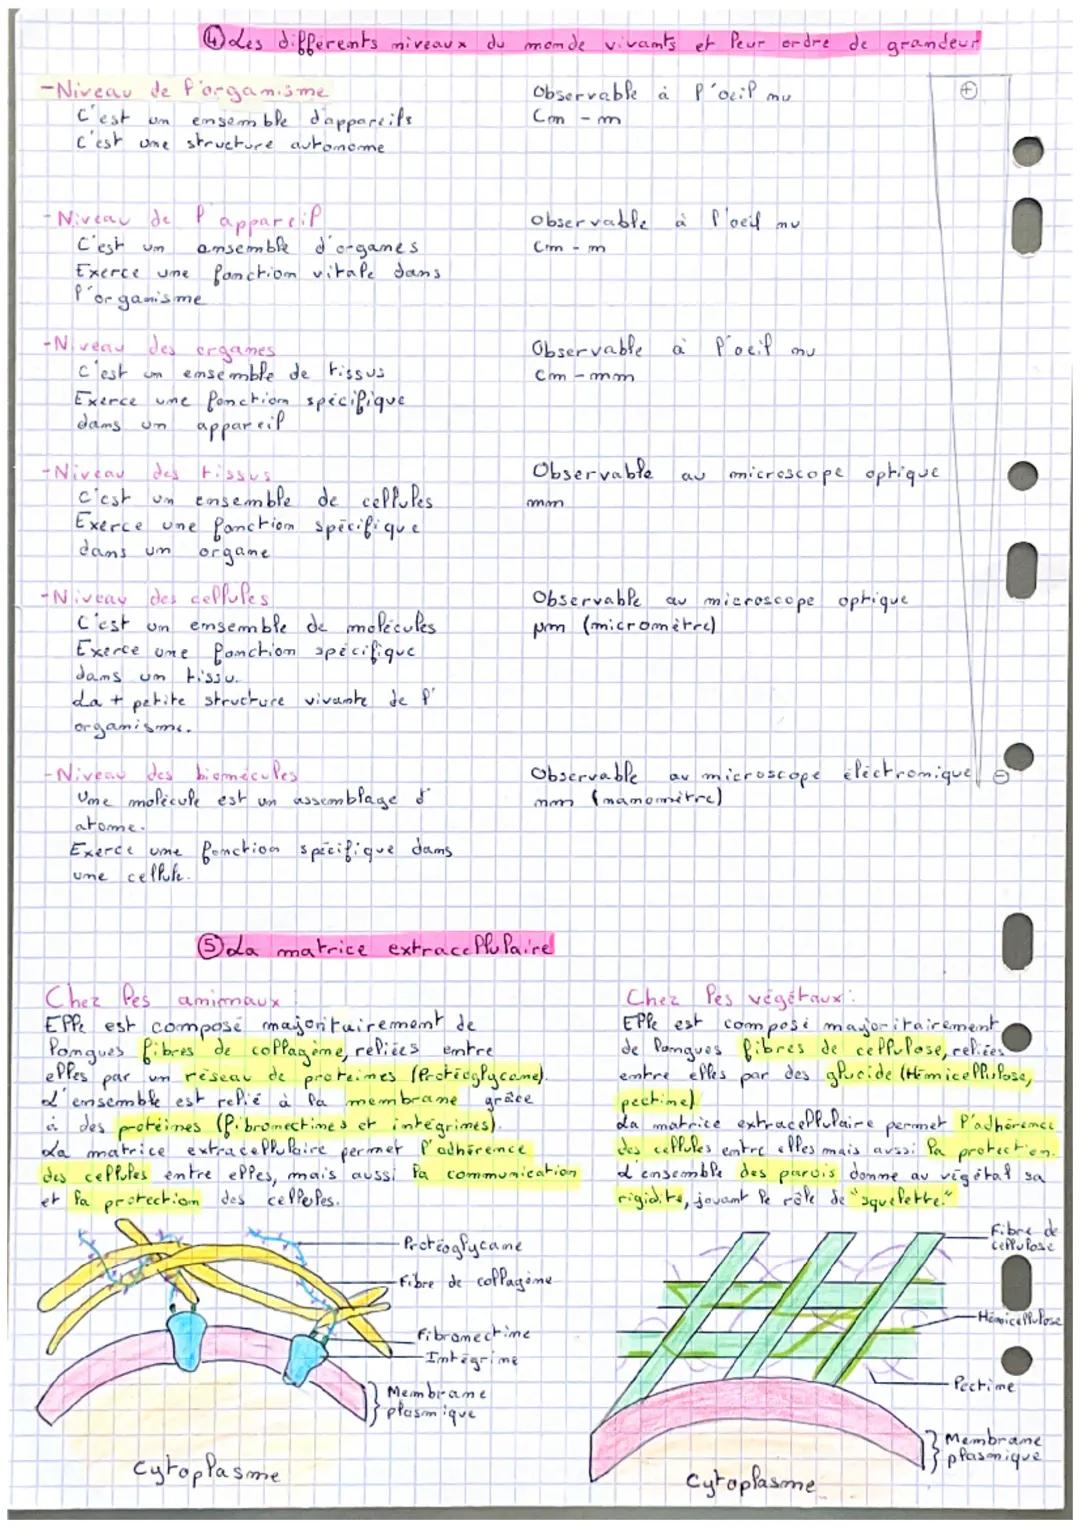 ④ Les différents niveaux du monde vivants et leur ordre de grandeur
-Niveau de l'organisme
C'est un ensemble d'appareils
C'est une structure autonome
Observable à l'oeil nu
Cm - m
⊕
-Niveau de l'appareil
C'est un ensemble d'organes
Exerce une fonction vitale dans
l'organisme
Observable à l'oeil nu
Cm - m
-Niveau des organes
C'est un ensemble de tissus
Exerce une fonction spécifique
dans un appareil
Observable à l'oeil nu
Cm - mm
-Niveau des tissus
C'est un ensemble de cellules
Exerce une fonction spécifique
dans un organe
Observable au microscope optique
mm
-Niveau des cellules
C'est un ensemble de molécules
Exerce une fonction spécifique
dans un tissu.
La + petite structure vivante de l'
organisme.
Observable au microscope optique
µm (micromètre)
-Niveau des biomécules
Une molécule est un assemblage d'
atome.
Exerce une fonction spécifique dans
une cellule.
Observable au microscope électronique
nm (nanomètre)
⊖
⑤ La matrice extracellulaire
Chez les animaux :
Elle est composé majoritairement de
longues fibres de collagène, reliées entre
elles par un réseau de protéines (Protéoglycane).
L'ensemble est relié à la membrane grâce
à des protéines (fibronectines et intégrines).
La matrice extracellulaire permet l'adhérence
des cellules entre elles, mais aussi la communication
et la protection des cellules.
Protéoglycane
Fibre de collagène
Fibronectine
Intégrine
Membrane
plasmique
Cytoplasme
Chez les végétaux :
Elle est composé majoritairement
de longues fibres de cellulose, reliées
entre elles par des glucide (Hémicellulose,
pectine)
La matrice extracellulaire permet l'adhérence
des cellules entre elles mais aussi la protection.
L'ensemble des parois donne au végétal sa
rigidité, jouant le rôle de "squelette."
Fibre de
cellulose
Hémicellulose
Pectine
Membrane
plasmique
Cytoplasme